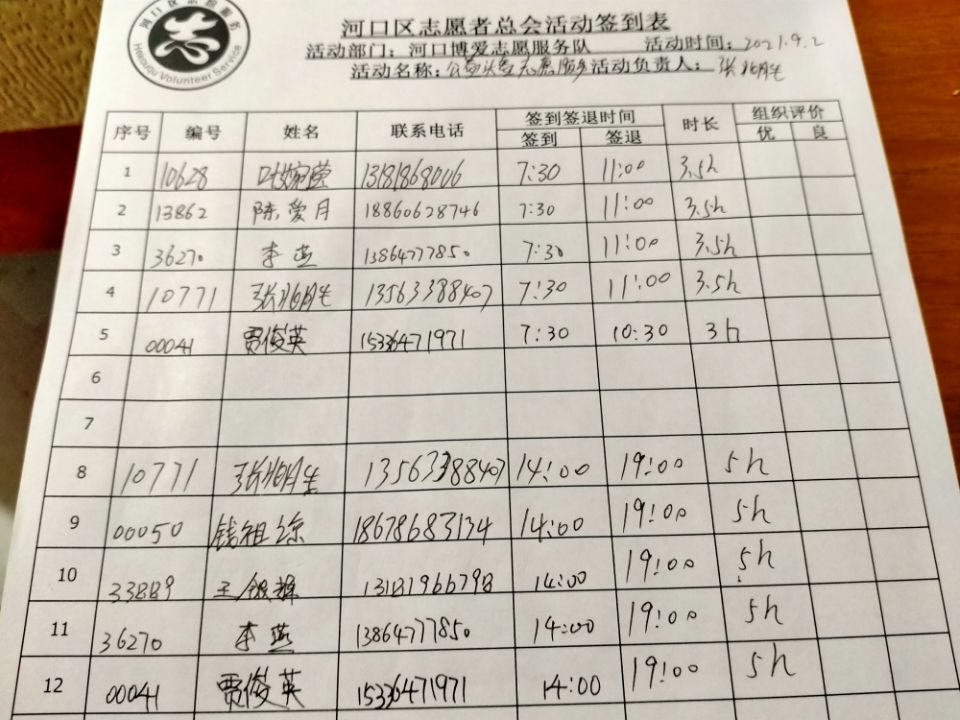 河口区志愿服务
Hekouqu Volunteer Service
河口区志愿者总会活动签到表
活动部门：河口博爱志愿服务队 活动时间：2021.9.2
活动名称： 志愿服务 活动负责人：张兆明生
序号 编号 姓名 联系电话 签到签退时间 时长 组织评价
签到 签退 优 良
1 10628 13181868006 7:30 11:00 3.5h
2 13862 陈爱月 18860628746 7:30 11:00 3.5h
3 36270 李燕 13864777850 7:30 11:00 3.5h
4 10771 13563388407 7:30 11:00 3.5h
5 00041 贾俊英 15336471971 7:30 10:30 3h
6
7
8 10771 13563388407 14:00 19:00 5h
9 00050 钱祖琼 18678683134 14:00 19:00 5h
10 33889 王银辉 13181966798 14:00 19:00 5h
11 36270 李燕 13864777850 14:00 19:00 5h
12 00041 贾俊英 15336471971 14:00 19:00 5h